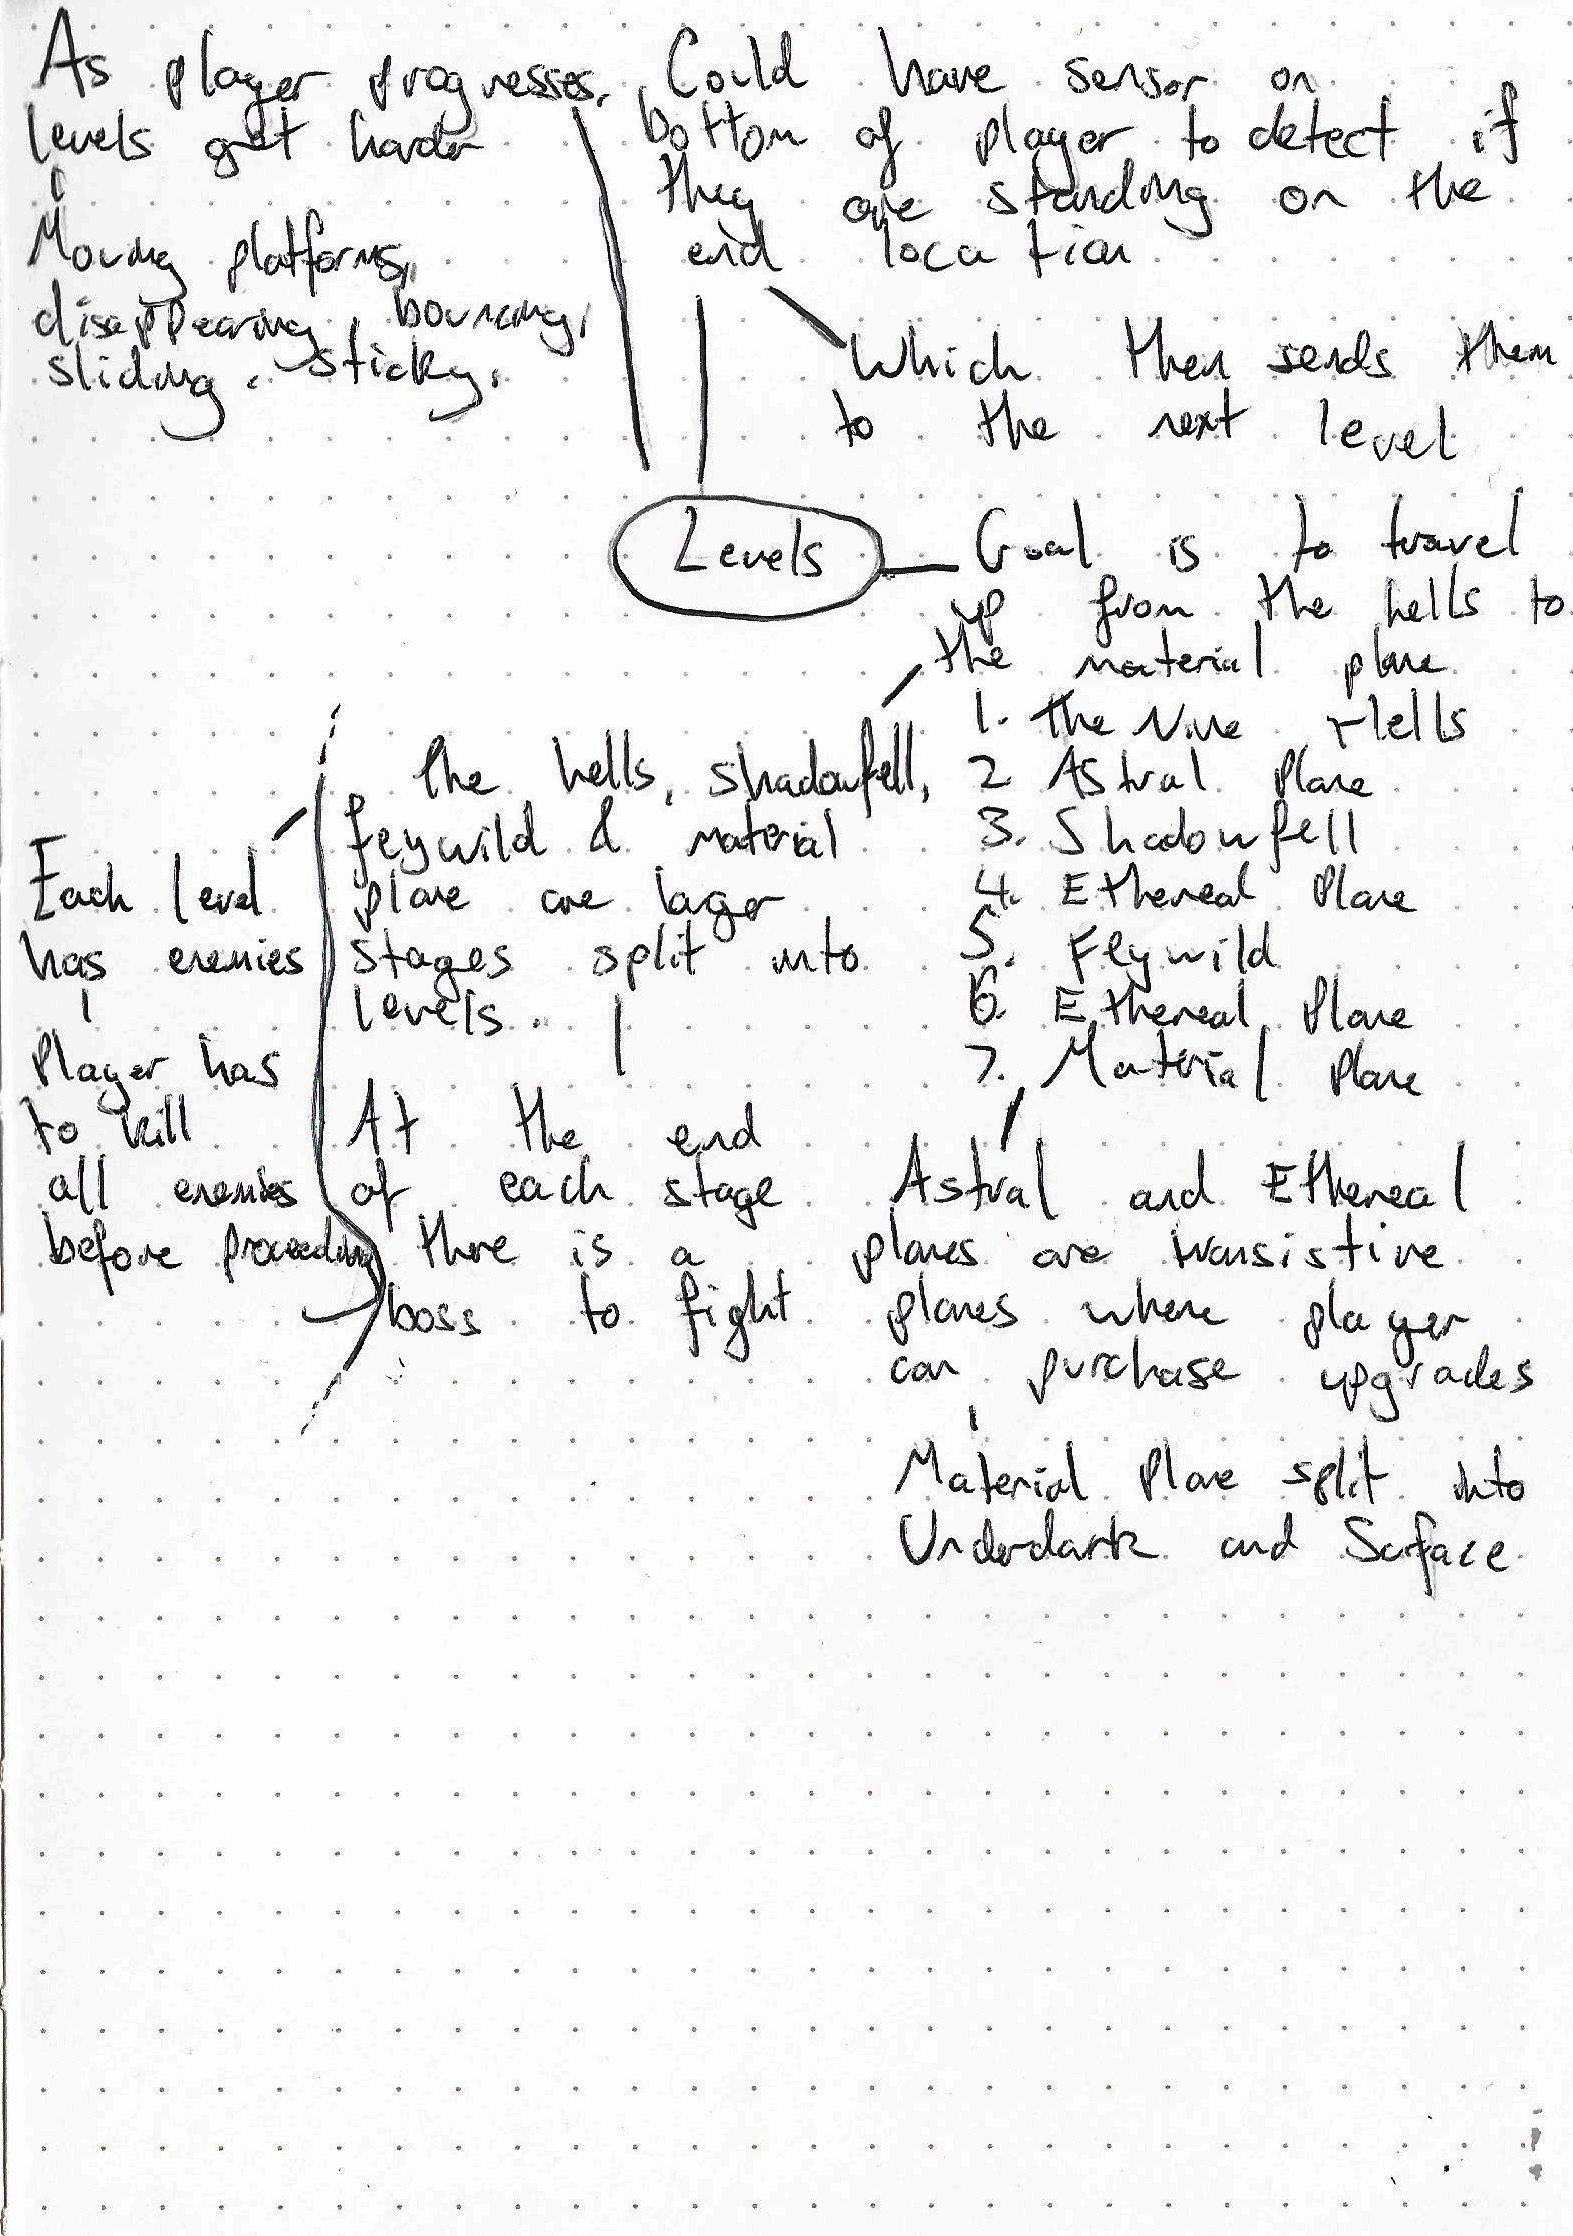 As player progresses,
levels get harder
Moving platforms,
disappearing, bouncing,
sliding, sticky,
Could have sensor on
bottom of player to detect if
they are standing on the
end location
Which then sends them
to the next level
Levels
Goal is to travel
up from the hells to
the material plane
1. The Nine Hells
2 Astral Plane
3. Shadowfell
4. Ethereal Plane
5. Feywild
6. Ethereal Plane
7. Material Plane
The hells, shadowfell,
feywild & material
plane are larger
stages split into
levels.
At the end
of each stage
there is a
boss to fight
Each level
has enemies
Player has
to kill
all enemies
before proceeding
Astral and Ethereal
planes are transistive
planes where player
can purchase upgrades
Material Plane split into
Underdark and Surface